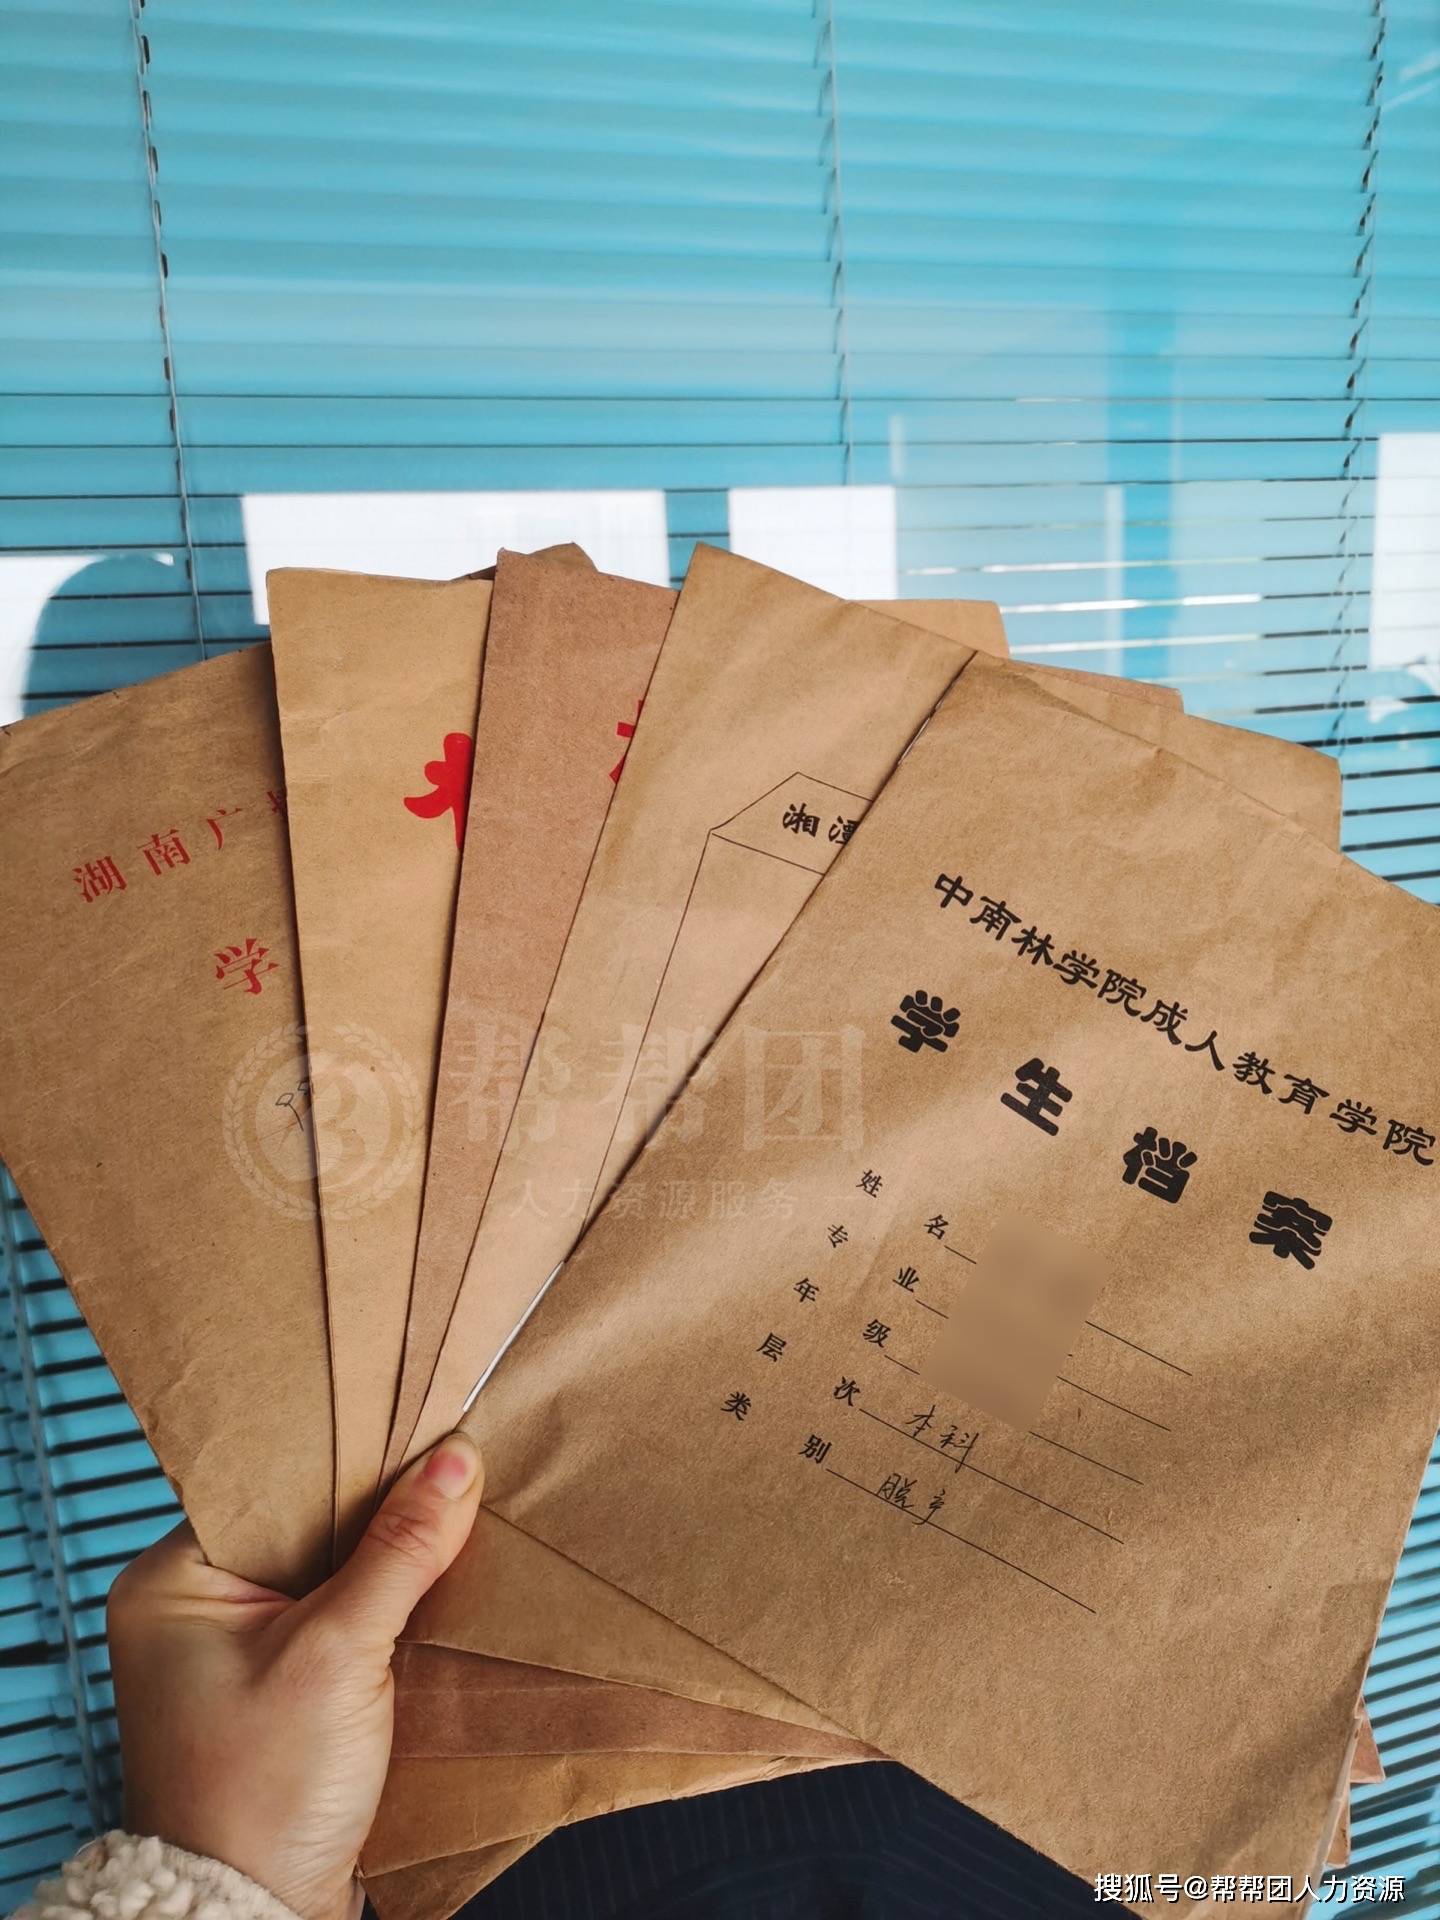 湖南广
学
湘潭
中南林学院成人教育学院
学生档案
姓名
专业
年级
层次 本科
类别 脱产
帮帮团
人力资源服务
搜狐号@帮帮团人力资源